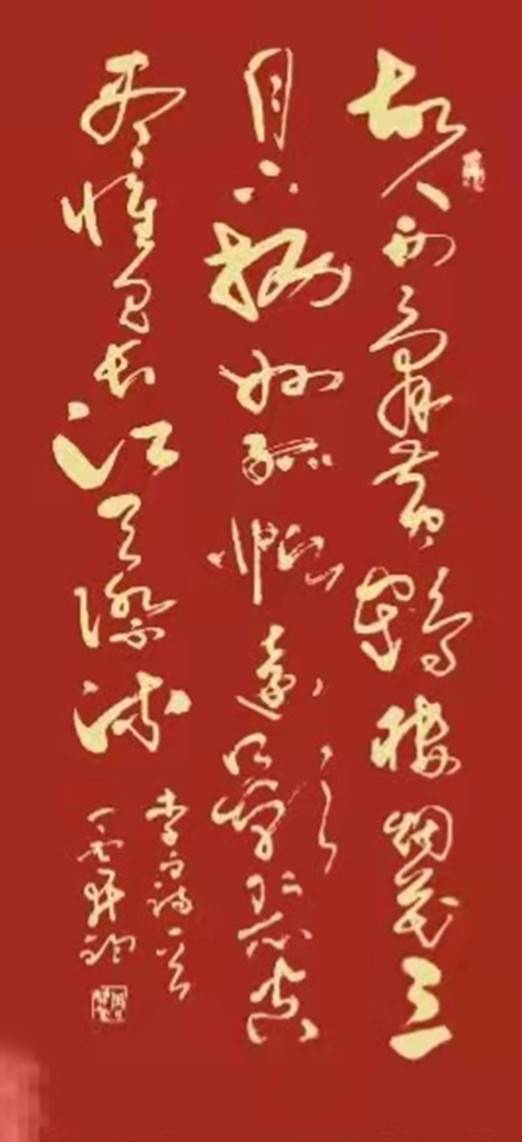 故人西辞黄鹤楼烟花三
月下扬州孤帆远影碧空
尽惟见长江天际流
李白诗一首